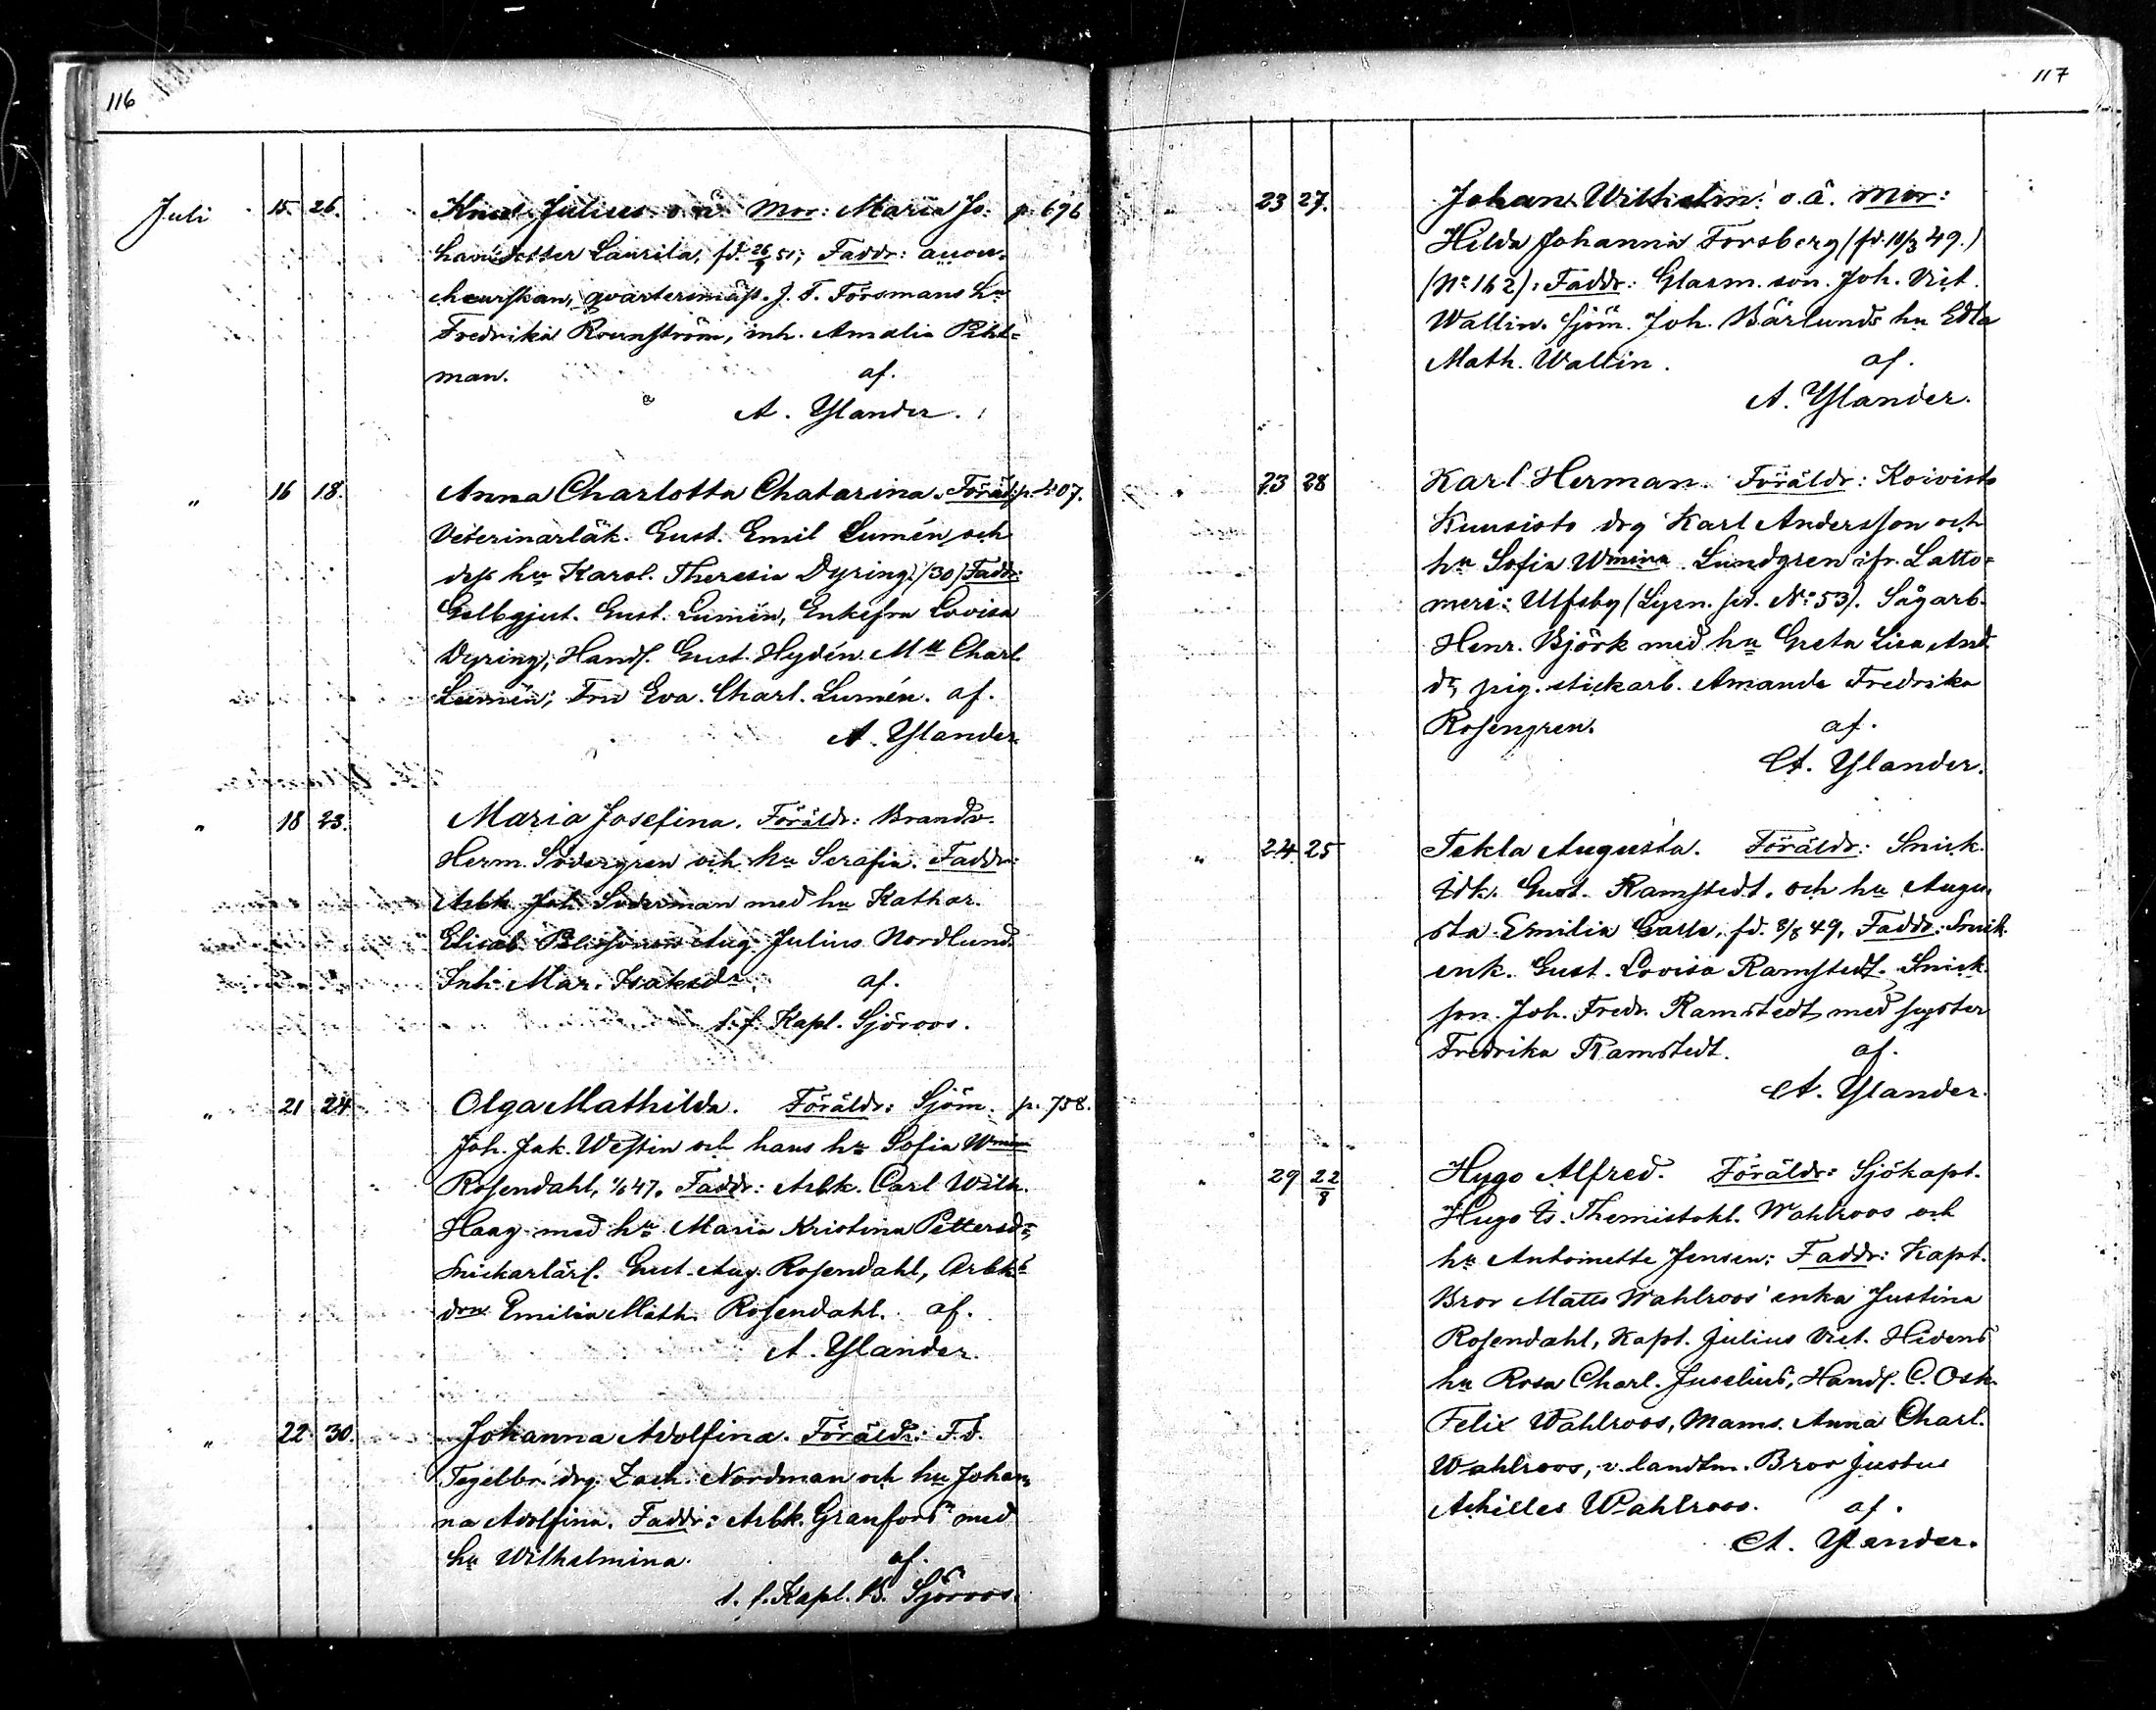 116
Juli 15. 26. Knut Julius o. ä. Mor: Maria Jo- p. 696
hansdotter Laurila, fd. 26/9 51; Faddr:
qvartersmäst. J. F. Forsmans hu
Fredrika Rounström, inh. Amalia
man. af.
A. Ylander.
" 16 18. Anna Charlotta Chatarina. Föräl: p. 407.
Veterinärläk. Gust. Emil Lumén och
dess hu Karol. Theresia Dyring (30) Faddr:
Gelbgjut. Gust. Lumén, Enkefru Lovisa
Dyring, Handl. Gust. Hydén. Mll Charl.
Lumén; Fru Eva. Charl. Lumén. af.
A. Ylander.
" 18 23. Maria Josefina. Föräldr: Brandv.
Herm. Södergren och hu Serafia. Faddr:
Arbk. Joh. Söderman med hu Kathar.
Elisab. Aug. Julius Nordlund.
Inh. Mar. Isaksdr af.
t. f. Kapl. Sjöroos.
" 21 24 Olga Mathilda. Föräldr: Sjöm. p. 758.
Joh. Jak. Westin och hans hu Sofia Wmina
Rosendahl, 1/6 47. Faddr: Arbk. Carl Wilh.
Haag med hu Maria Kristina Pettersdr,
Snickarlärl. Gust. Aug. Rosendahl, Arbks
drn Emilia Math. Rosendahl. af.
A. Ylander.
" 22 30. Johanna Adolfina. Föräldr: F.d.
Tegelbr. drg. Zach. Nordman och hu Johan-
na Adolfina. Faddr: Arbk. Granfors med
hu Wilhelmina. af.
t. f. Kapl. B. Sjöroos.
117
" 23 27. Johan Wilhelm: o. ä. Mor:
Hilda Johanna Forsberg (fd. 10/3 49.)
(No 162). Faddr: Glasm. son. Joh. Vict.
Wallin. Sjöm. Joh. Bärlunds hu Edla
Math. Wallin. af.
A. Ylander.
" 23 28 Karl Herman. Föräldr: Koivisto
Kuusisto drg Karl Andersson och
hu Sofia Wmina Lundgren ifr. Latto-
meri: Ulfsby (Lysn. sed. No 53). Sågarb.
Henr. Björk med hu Greta Lisa And.
dr, pig. stickarb. Amanda Fredrika
Rosengren. af.
A. Ylander.
" 24. 25 Tekla Augusta. Föräldr: Snick.
idk. Gust. Ramstedt. och hu Augu-
sta Emilia Galle, fd. 8/8 49. Faddr: Snick.
enk. Gust. Lovisa Ramstedt. Snick.
son. Joh. Fredr. Ramstedt med syster
Fredrika Ramstedt. af.
A. Ylander.
" 29 22/8 Hugo Alfred. Föräldr: Sjökapt.
Hugo Themistokl. Wahlroos och
hu Antoinette Jensen: Faddr: Kapt.
Bror Matts Wahlroos' enka Justina
Rosendahl, Kapt. Julius Vict. Hidens
hu Rosa Charl. Juselius, Handl. C. Osk.
Felix Wahlroos, Mams. Anna Charl.
Wahlroos, v. landtm. Bror Justus
Achilles Wahlroos. af.
A. Ylander.